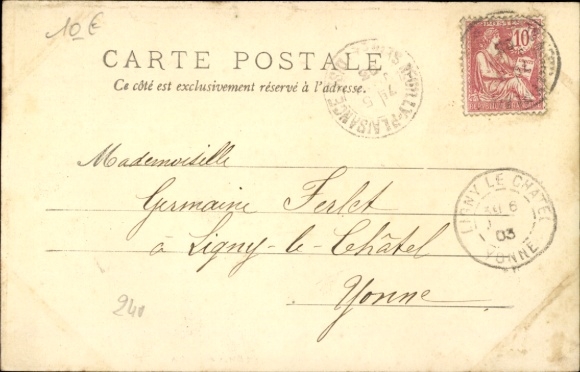 10 €
CARTE POSTALE
Ce côté est exclusivement réservé à l'adresse.
10c
NEUILLY-PLAISANCE
LIGNY LE CHATEL
6
03
YONNE
Mademoiselle
Germaine Ferlet
à Ligny-le-Châtel
Yonne
240